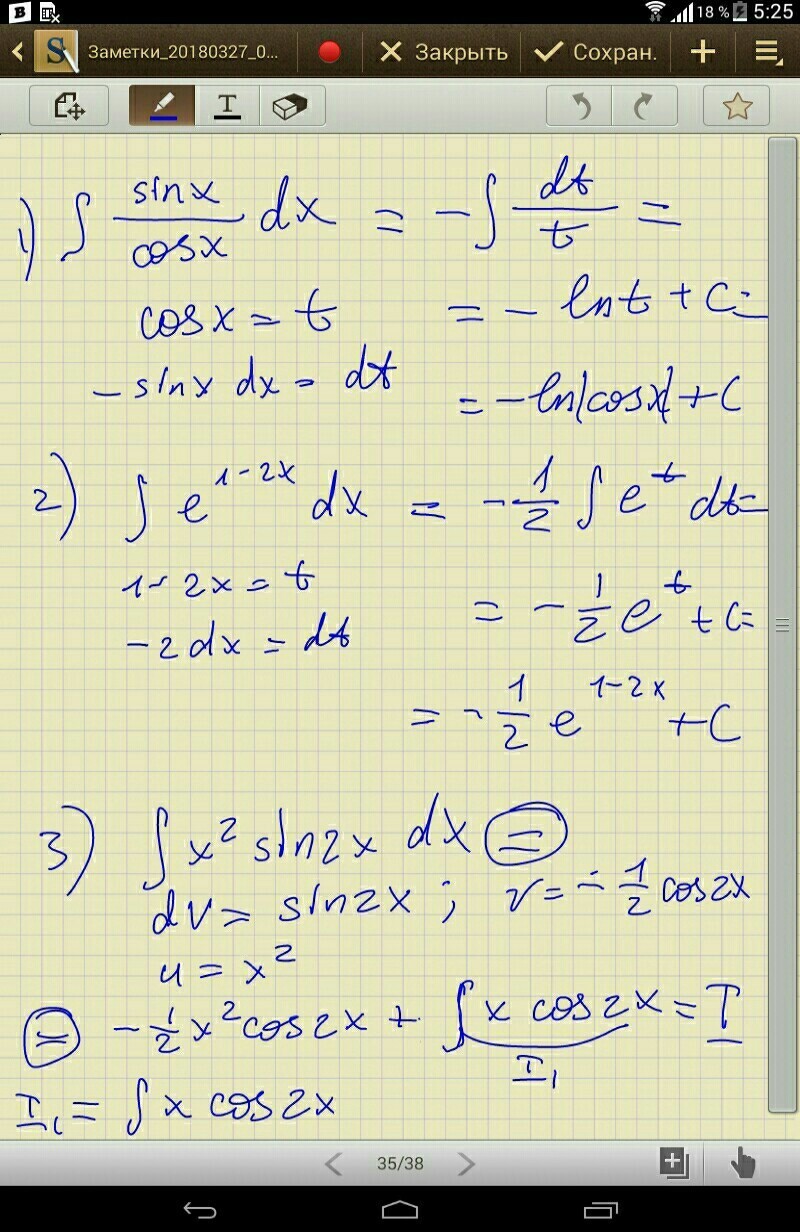 18 % 5:25
Заметки_20180327_0... Закрыть Сохран.
1) ∫ sinx/cosx dx = -∫ dt/t =
cosx = t = - lnt + C =
- sinx dx = dt = -ln|cosx| + C
2) ∫ e^(1-2x) dx = -1/2 ∫ e^t dt =
1-2x = t = -1/2 e^t + C =
-2dx = dt
= -1/2 e^(1-2x) + C
3) ∫ x² sin2x dx =
dv = sin2x ; v = -1/2 cos2x
u = x²
= -1/2 x² cos2x + ∫ x cos2x = I
I₁
I₁ = ∫ x cos2x
35/38